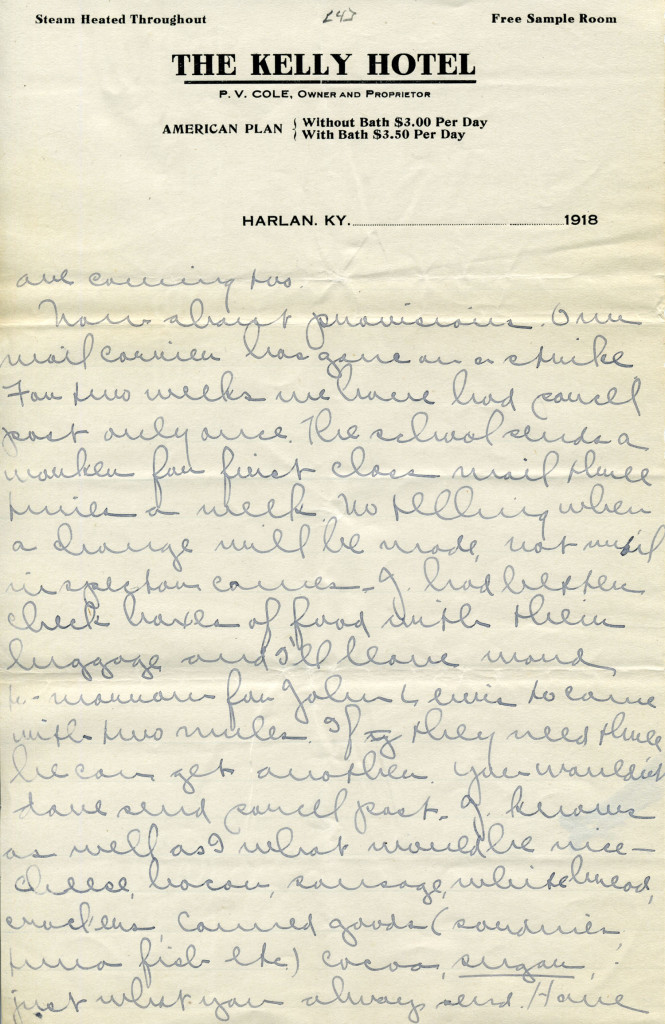 Steam Heated Throughout [4] Free Sample Room
THE KELLY HOTEL
P. V. COLE, OWNER AND PROPRIETOR
AMERICAN PLAN { Without Bath $3.00 Per Day
With Bath $3.50 Per Day
HARLAN, KY. 1918
are coming too.
Now about provisions. Our
mail carrier has gone on a strike
For two weeks we have had parcel
post only once. The school sends a
worker for first class mail three
times a week. No telling when
a change will be made, not until
inspector comes. J. had better
check boxes of food with their
luggage and I'll leave word
to-morrow for John Lewis to come
with two mules. If they need three
he can get another. You wouldn't
dare send parcel post. J. knows
as well as I what would be nice-
cheese, bacon, sausage, white bread,
crackers, canned goods (sardines
tuna fish etc) cocoa, sugar,
just what you always send. Have